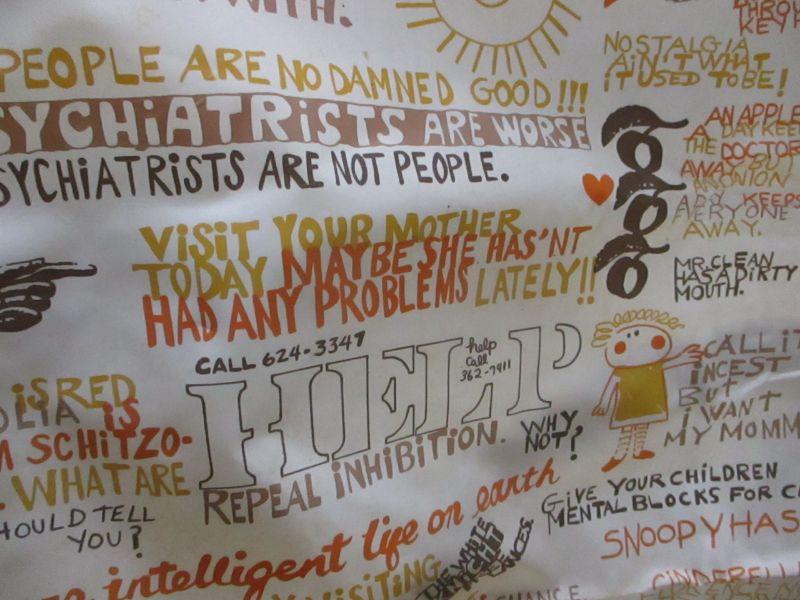 WITH.
PEOPLE ARE NO DAMNED GOOD!!!
SYCHIATRISTS ARE WORSE
SYCHIATRISTS ARE NOT PEOPLE.
VISIT YOUR MOTHER
TODAY MAYBE SHE HAS'NT
HAD ANY PROBLEMS LATELY!!
CALL 624-3347
HELP
help
call
362-7911
REPEAL INHIBITION.
WHY
NOT?
IS RED
IS
SCHITZO-
WHAT ARE
HOULD TELL
YOU?
intelligent life on earth
VISITING
THROU
KEYH
NOSTALGIA
AIN'T WHAT
IT USED TO BE!
AN APPLE
A DAY KEE
THE DOCTOR
AWAY BUT
AN ONION
A DY KEEPS
EVERYONE
AWAY.
MR. CLEAN
HAS A DIRTY
MOUTH.
CALL IT
INCEST
BUT
I WANT
MY MOMM
GIVE YOUR CHILDREN
MENTAL BLOCKS FOR C
SNOOPY HAS
CINDERELL
CHANCE